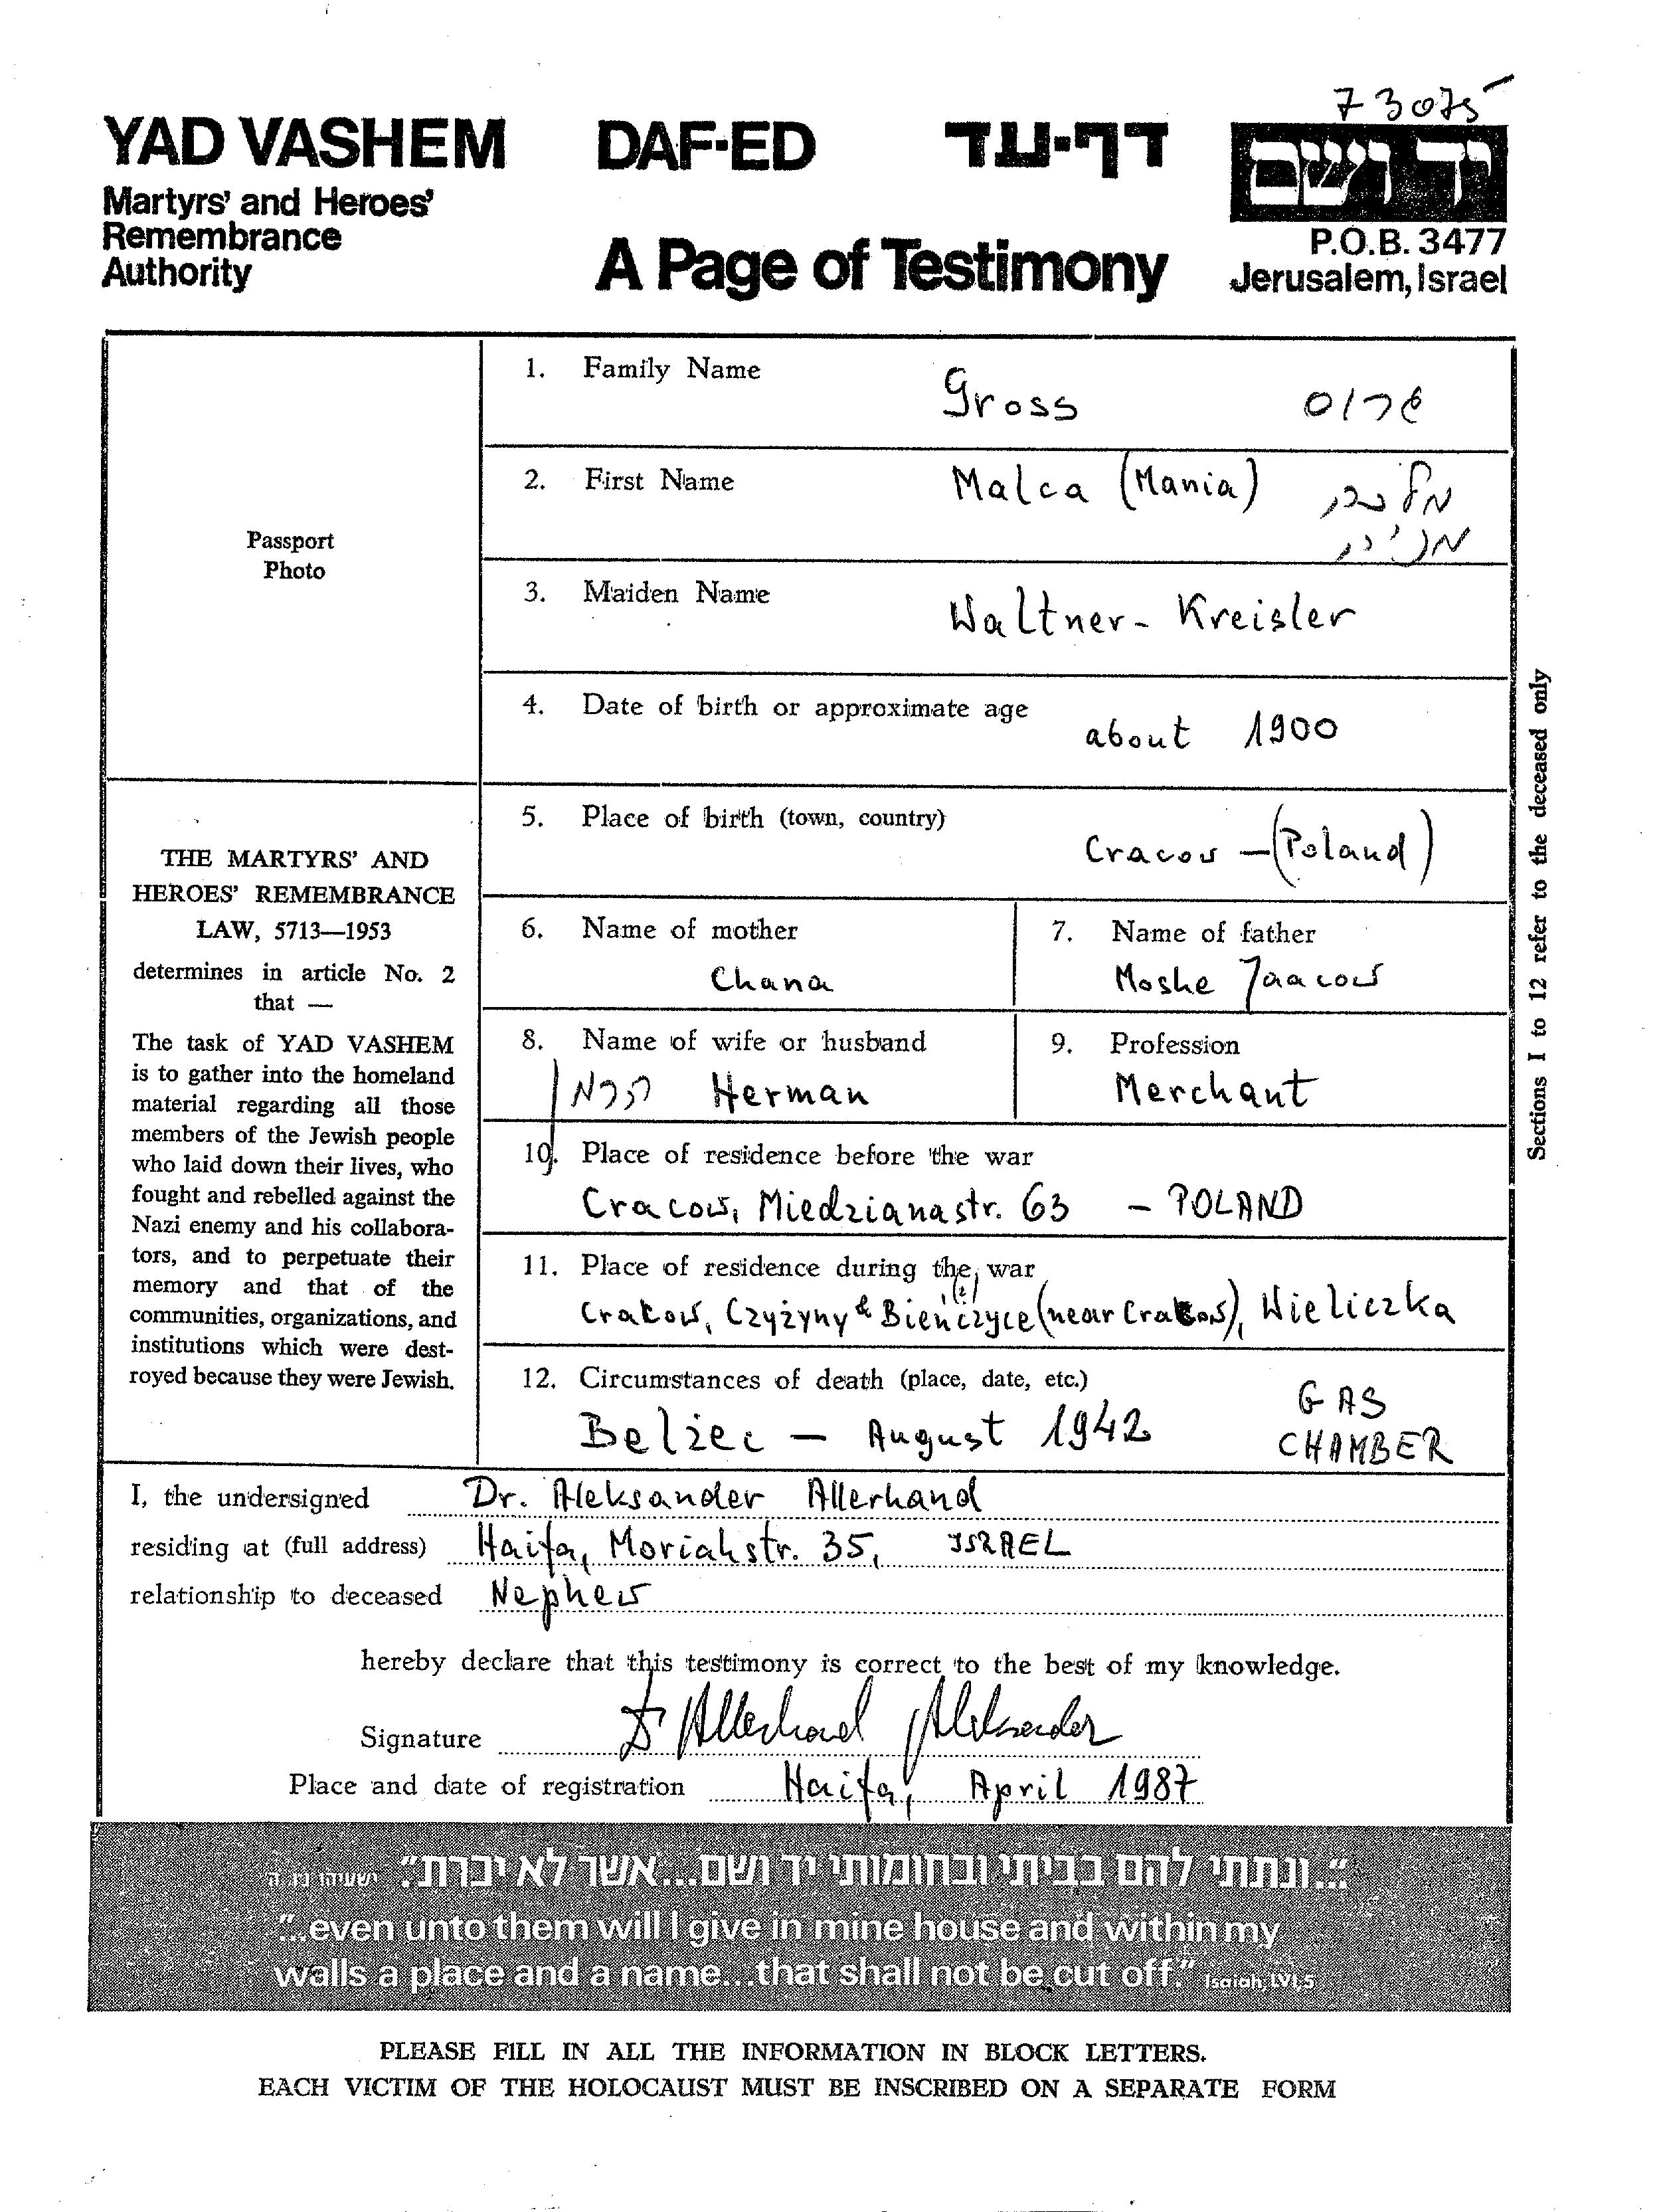 73075
YAD VASHEM DAF-ED דף-עד יד ושם
Martyrs' and Heroes'
Remembrance
Authority
A Page of Testimony
P.O.B. 3477
Jerusalem, Israel
Passport
Photo
1. Family Name Gross גרוס
2. First Name Malca (Mania) מלכה
מניה
3. Maiden Name Waltner - Kreisler
4. Date of birth or approximate age about 1900
5. Place of birth (town, country) Cracow - (Poland)
6. Name of mother
Chana
7. Name of father
Moshe Jaacow
8. Name of wife or husband
Herman
9. Profession
Merchant
10. Place of residence before the war
Cracow, Miedzianastr. 63 - POLAND
11. Place of residence during the war
Crakow, Czyżyny & Bieńczyce (near Crakow), Wieliczka
12. Circumstances of death (place, date, etc.)
Belżec - August 1942 GAS
CHAMBER
THE MARTYRS' AND
HEROES' REMEMBRANCE
LAW, 5713—1953
determines in article No. 2
that —
The task of YAD VASHEM
is to gather into the homeland
material regarding all those
members of the Jewish people
who laid down their lives, who
fought and rebelled against the
Nazi enemy and his collabora-
tors, and to perpetuate their
memory and that of the
communities, organizations, and
institutions which were dest-
royed because they were Jewish.
Sections 1 to 12 refer to the deceased only
I, the undersigned Dr. Aleksander Allerhand
residing at (full address) Haifa, Moriahstr. 35, ISRAEL
relationship to deceased Nephew
hereby declare that this testimony is correct to the best of my knowledge.
Signature Dr Allerhand Aleksander
Place and date of registration Haifa, April 1987
"...ונתתי להם בביתי ובחומותי יד ושם...אשר לא יכרת." ישעיהו נו, ה
"...even unto them will I give in mine house and within my
walls a place and a name...that shall not be cut off." Isaiah, LVI, 5
PLEASE FILL IN ALL THE INFORMATION IN BLOCK LETTERS.
EACH VICTIM OF THE HOLOCAUST MUST BE INSCRIBED ON A SEPARATE FORM